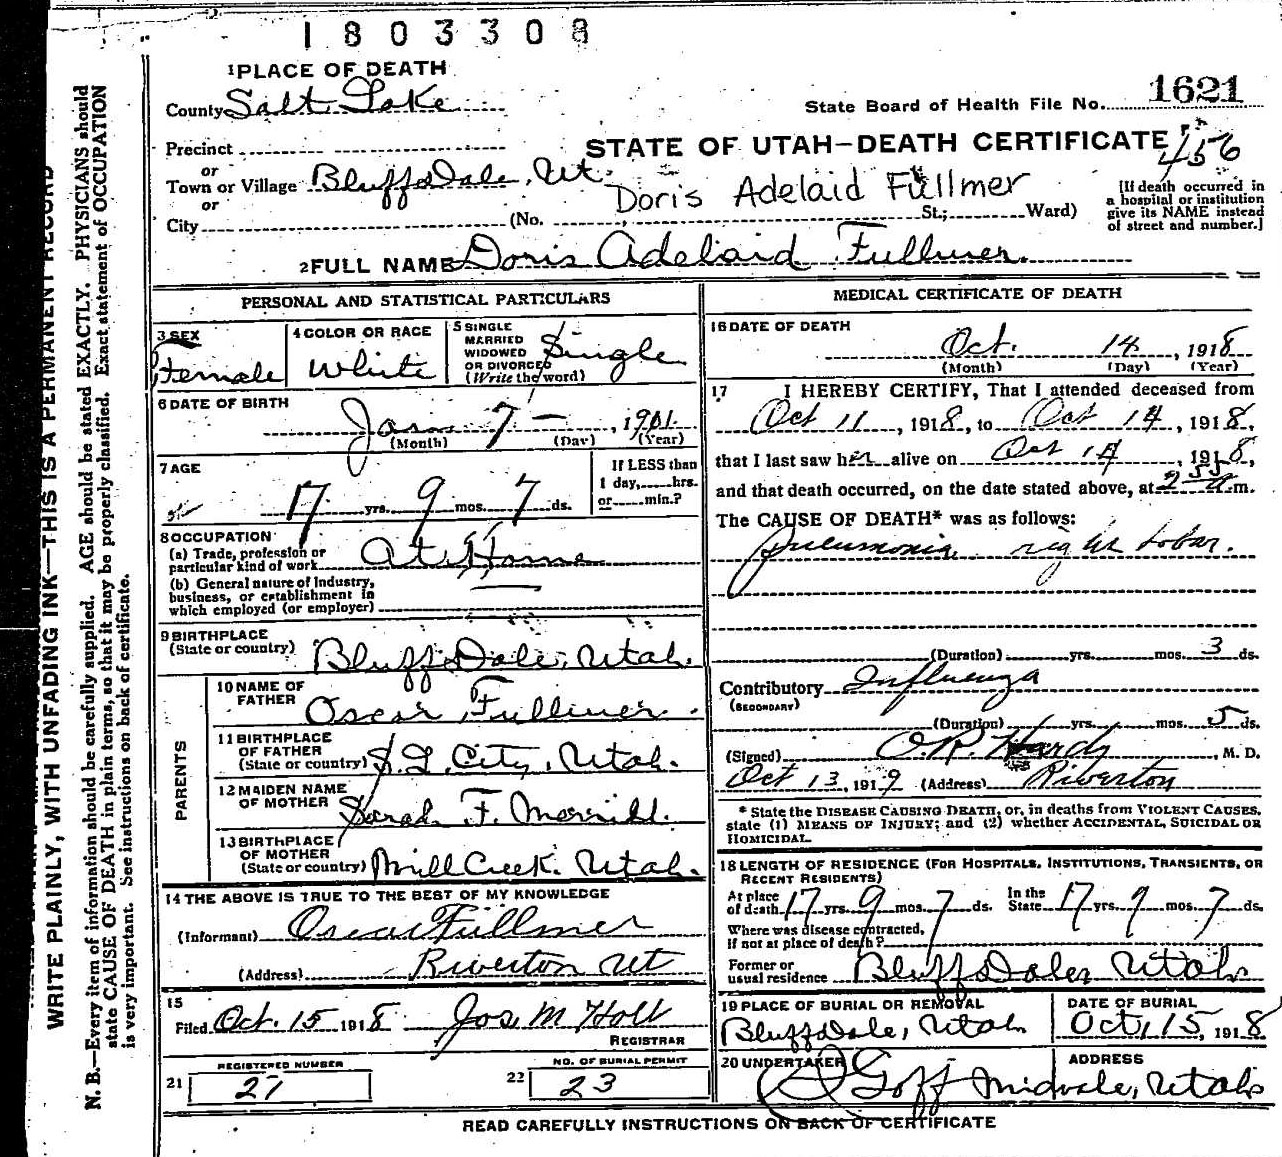 1803308
1 PLACE OF DEATH
County Salt Lake
State Board of Health File No. 1621
Precinct
STATE OF UTAH—DEATH CERTIFICATE
456
or
Town or Village Bluffdale, Ut.
Doris Adelaid Fullmer
or
City (No. St.; Ward)
[If death occurred in
a hospital or institution
give its NAME instead
of street and number.]
2 FULL NAME Doris Adelaid Fullmer.
PERSONAL AND STATISTICAL PARTICULARS
3 SEX
Female
4 COLOR OR RACE
White
5 SINGLE
MARRIED
WIDOWED
OR DIVORCED
(Write the word)
Single
6 DATE OF BIRTH
Jan 7 — , 1901
(Month) (Day) (Year)
7 AGE
17 yrs. 9 mos. 7 ds.
If LESS than
1 day, hrs.
or min.?
8 OCCUPATION
(a) Trade, profession or
particular kind of work At Home
(b) General nature of industry,
business, or establishment in
which employed (or employer)
9 BIRTHPLACE
(State or country) Bluffdale, Utah.
PARENTS
10 NAME OF
FATHER Oscar Fullmer.
11 BIRTHPLACE
OF FATHER
(State or country) S. L. City, Utah.
12 MAIDEN NAME
OF MOTHER Sarah F. Merrill.
13 BIRTHPLACE
OF MOTHER
(State or country) Mill Creek. Utah.
14 THE ABOVE IS TRUE TO THE BEST OF MY KNOWLEDGE
(Informant) Oscar Fullmer
(Address) Riverton Ut
15
Filed Oct. 15 1918 Jos. M Holt
REGISTRAR
REGISTERED NUMBER
21 27
NO. OF BURIAL PERMIT
22 23
MEDICAL CERTIFICATE OF DEATH
16 DATE OF DEATH
Oct. 14 , 1918
(Month) (Day) (Year)
17 I HEREBY CERTIFY, That I attended deceased from
Oct 11 , 1918, to Oct 14 , 1918,
that I last saw her alive on Oct 14 , 1918,
and that death occurred, on the date stated above, at 2 55 a m.
The CAUSE OF DEATH* was as follows:
pneumonia right lobar.
(Duration) yrs. mos. 3 ds.
Contributory Influenza
(SECONDARY)
(Duration) yrs. mos. 5 ds.
(Signed) O. R. Hardy , M. D.
Oct 13, 1919 (Address) Riverton
* State the DISEASE CAUSING DEATH, or, in deaths from VIOLENT CAUSES,
state (1) MEANS OF INJURY; and (2) whether ACCIDENTAL, SUICIDAL OR
HOMICIDAL.
18 LENGTH OF RESIDENCE (FOR HOSPITALS, INSTITUTIONS, TRANSIENTS, OR
RECENT RESIDENTS)
At place
of death 17 yrs. 9 mos. 7 ds.
In the
State 17 yrs 9 mos. 7 ds.
Where was disease contracted,
if not at place of death?
Former or
usual residence Bluffdale, Utah
19 PLACE OF BURIAL OR REMOVAL
Bluffdale, Utah
DATE OF BURIAL
Oct, 15, 1918
20 UNDERTAKER
Goff
ADDRESS
Midvale, Utah
READ CAREFULLY INSTRUCTIONS ON BACK OF CERTIFICATE
WRITE PLAINLY, WITH UNFADING INK—THIS IS A PERMANENT RECORD
N. B.—Every item of information should be carefully supplied. AGE should be stated EXACTLY. PHYSICIANS should
state CAUSE OF DEATH in plain terms, so that it may be properly classified. Exact statement of OCCUPATION
is very important. See instructions on back of certificate.